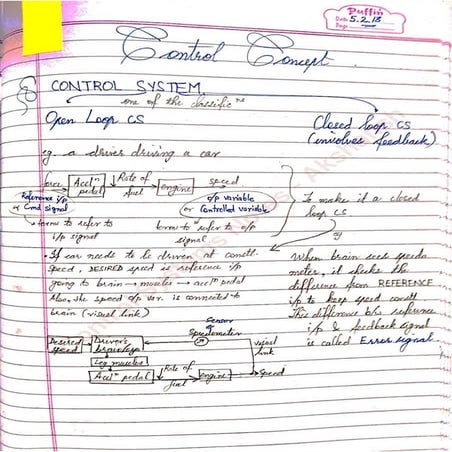 Puffin
Date 5.2.18
Page
Control Concept
CONTROL SYSTEM.
one of the classific
Open Loop CS
Closed loop CS
(involves feedback)
eg. a driver driving a car
force
Accln pedal
Rate of fuel
engine
speed
Reference i/p
or Cmd signal
o/p variable
or Controlled variable
terms to refer to
i/p signal
terms to refer to o/p
signal
To make it a closed
loop CS
eg
• If car needs to be driven at constt.
speed, DESIRED speed is reference i/p
going to brain → muscles → accln pedal
Also, the speed o/p var. is connected to
brain (visual link)
When brain sees speedo
meter, it checks the
difference from REFERENCE
i/p to keep speed constt
This difference b/w reference
i/p & feedback signal
is called Error signal.
Sensor
or
Speedometer
Desired
speed
Driver's
brain
visual
link
Leg muscles
Accln pedal
Rate of
fuel
engine
Speed